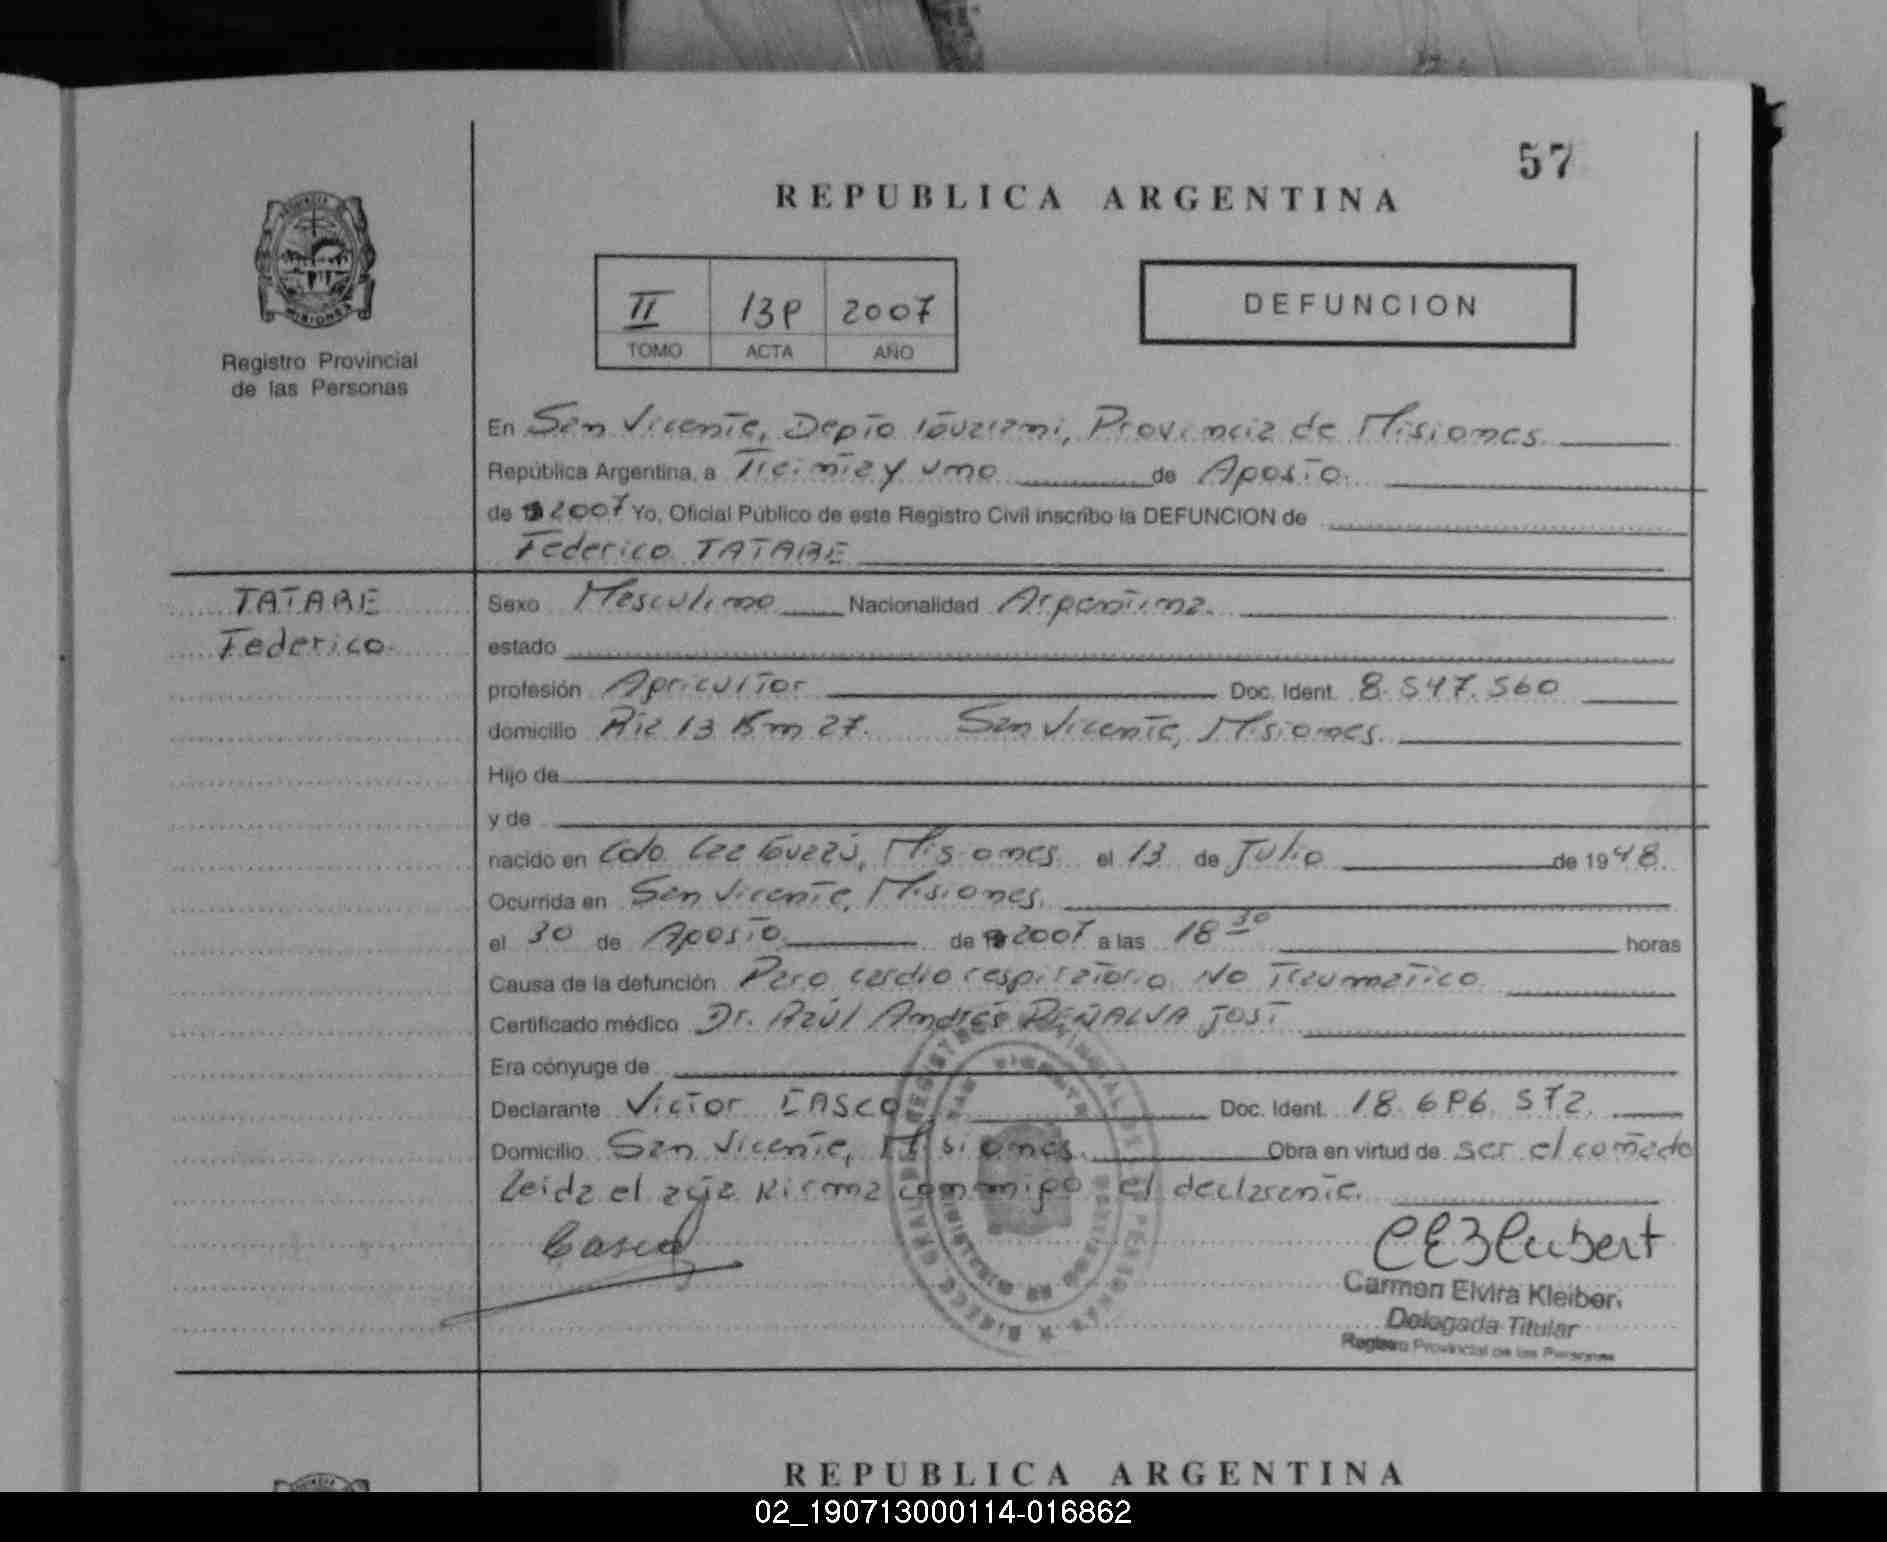 57
REPUBLICA ARGENTINA
II 13P 2007
TOMO ACTA AÑO
DEFUNCION
MISIONES
Registro Provincial
de las Personas
En San Vicente, Depto Guaraní, Provincia de Misiones
República Argentina, a Treinta y uno de Agosto
de 2007 Yo, Oficial Público de este Registro Civil inscribo la DEFUNCION de
Federico TATARE
TATARE
Federico
Sexo Masculino Nacionalidad Argentina
estado
profesión Agricultor Doc. Ident. 8.547.560
domicilio Km 27. San Vicente, Misiones.
Hijo de
y de
nacido en Misiones el 13 de Julio de 1948.
Ocurrida en San Vicente, Misiones.
el 30 de Agosto de 2007 a las 18 30 horas
Causa de la defunción Paro cardio respiratorio No Traumatico
Certificado médico Dr. Raúl Andrés PEÑALVA JOST
Era cónyuge de
Declarante Victor CASCO Doc. Ident.
Domicilio San Vicente, Misiones. Obra en virtud de ser el cuñado
Leida el acta firma conmigo el declarante.
Casco
Carmen Elvira Kleibert
Delegada Titular
Registro Provincial de las Personas
REPUBLICA ARGENTINA
02_190713000114-016862